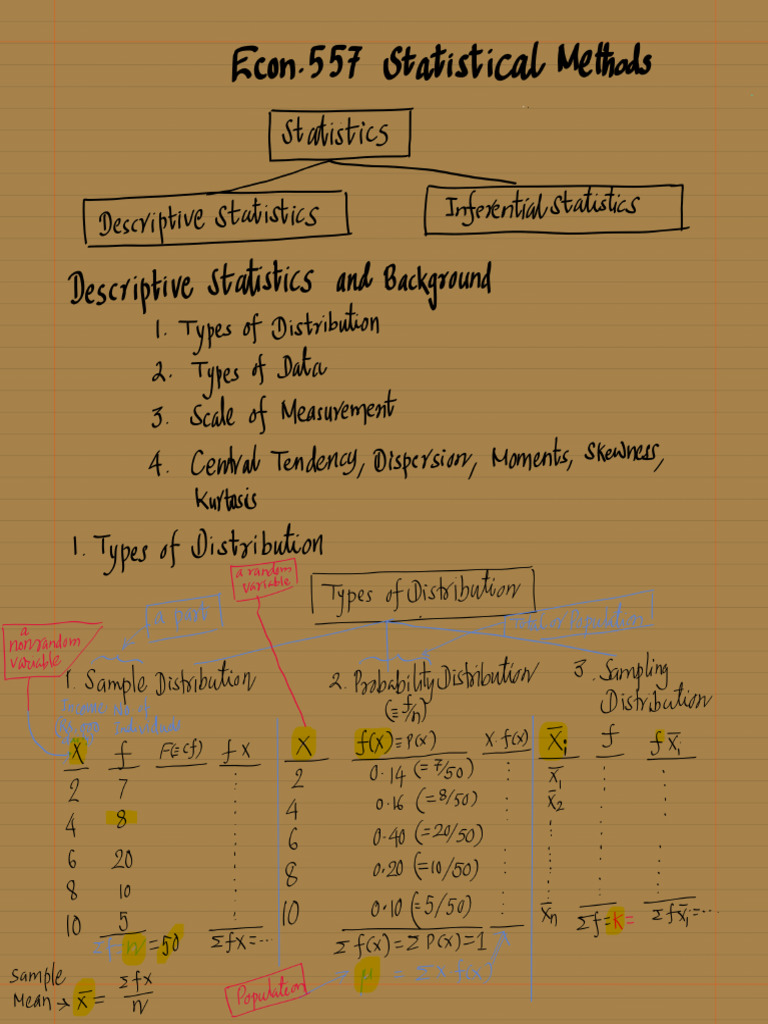 Econ.557 Statistical Methods
Statistics
Descriptive Statistics
Inferential Statistics
Descriptive Statistics and Background
1. Types of Distribution
2. Types of Data
3. Scale of Measurement
4. Central Tendency, Dispersion, Moments, Skewness,
Kurtosis
1. Types of Distribution
a random
variable
Types of Distribution
a part
Total or Population
a
nonrandom
variable
1. Sample Distribution
2. Probability Distribution
(≡ f/n)
3. Sampling
Distribution
Income No of
Individuals
X f F(≡cf) fX
2 7
4 8
6 20
8 10
10 5
Σf=n=50 ΣfX=...
Sample
Mean → X̄ = ΣfX/n
X f(X)=P(X) X.f(X)
2 0.14 (=7/50)
4 0.16 (=8/50)
6 0.40 (=20/50)
8 0.20 (=10/50)
10 0.10 (=5/50)
Σf(X)=ΣP(X)=1
= μ = ΣX.f(X)
Population
X̄i f fX̄i
X̄1
X̄2
X̄n Σf=k= ΣfX̄i=...